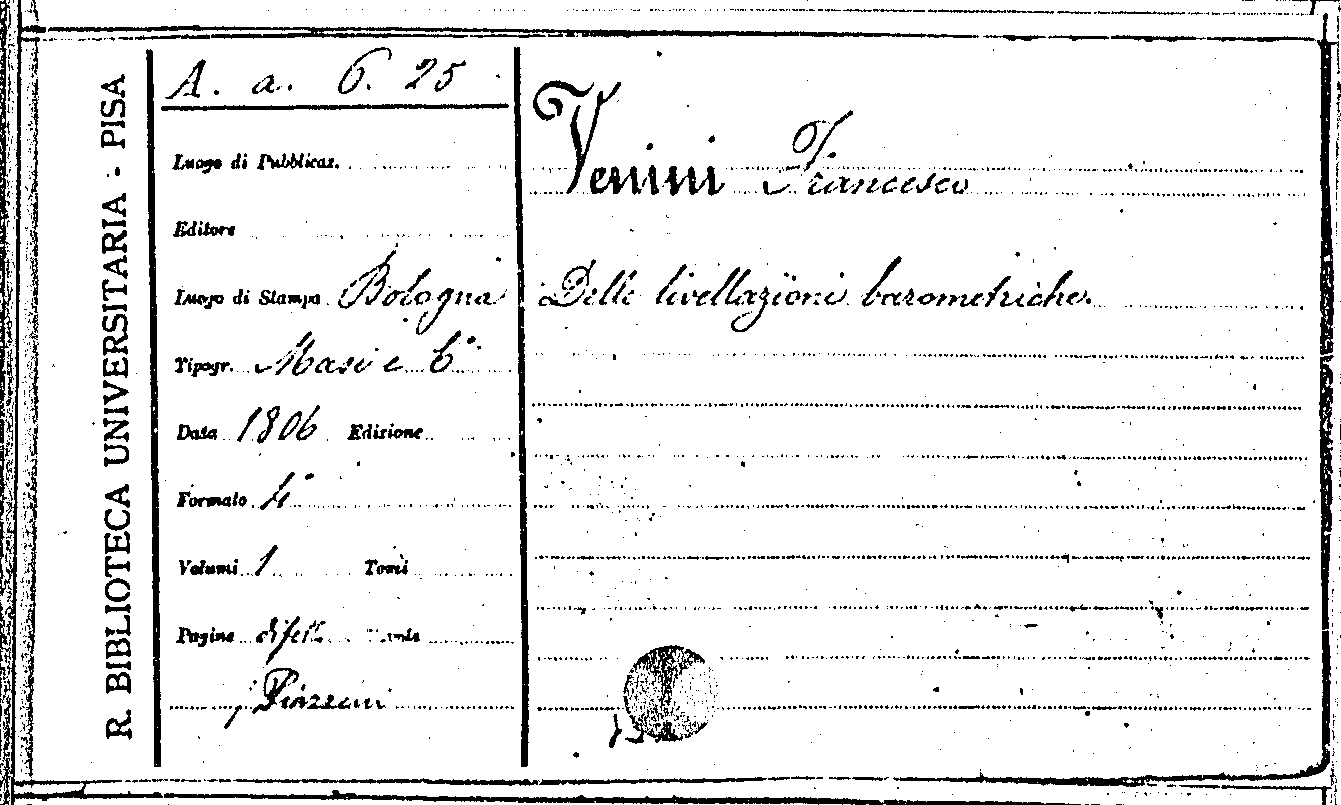 R. BIBLIOTECA UNIVERSITARIA - PISA
A. a. 6. 25
Luogo di Pubblicaz.
Editore
Luogo di Stampa Bologna
Tipogr. Masi e C°
Data 1806 Edizione
Formato 4°
Volumi 1 Tomi
Pagine
Piazzani
Venini Francesco
Delle livellazioni barometriche.